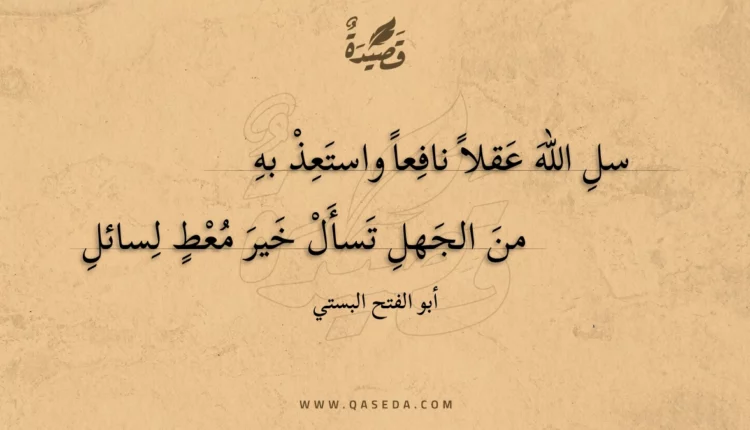 قَصِيْدَةٌ
سلِ اللهَ عَقلاً نافِعاً واستَعِذْ بهِ
منَ الجَهلِ تَسأَلْ خَيرَ مُعْطٍ لِسائلِ
أبو الفتح البستي
WWW.QASEDA.COM